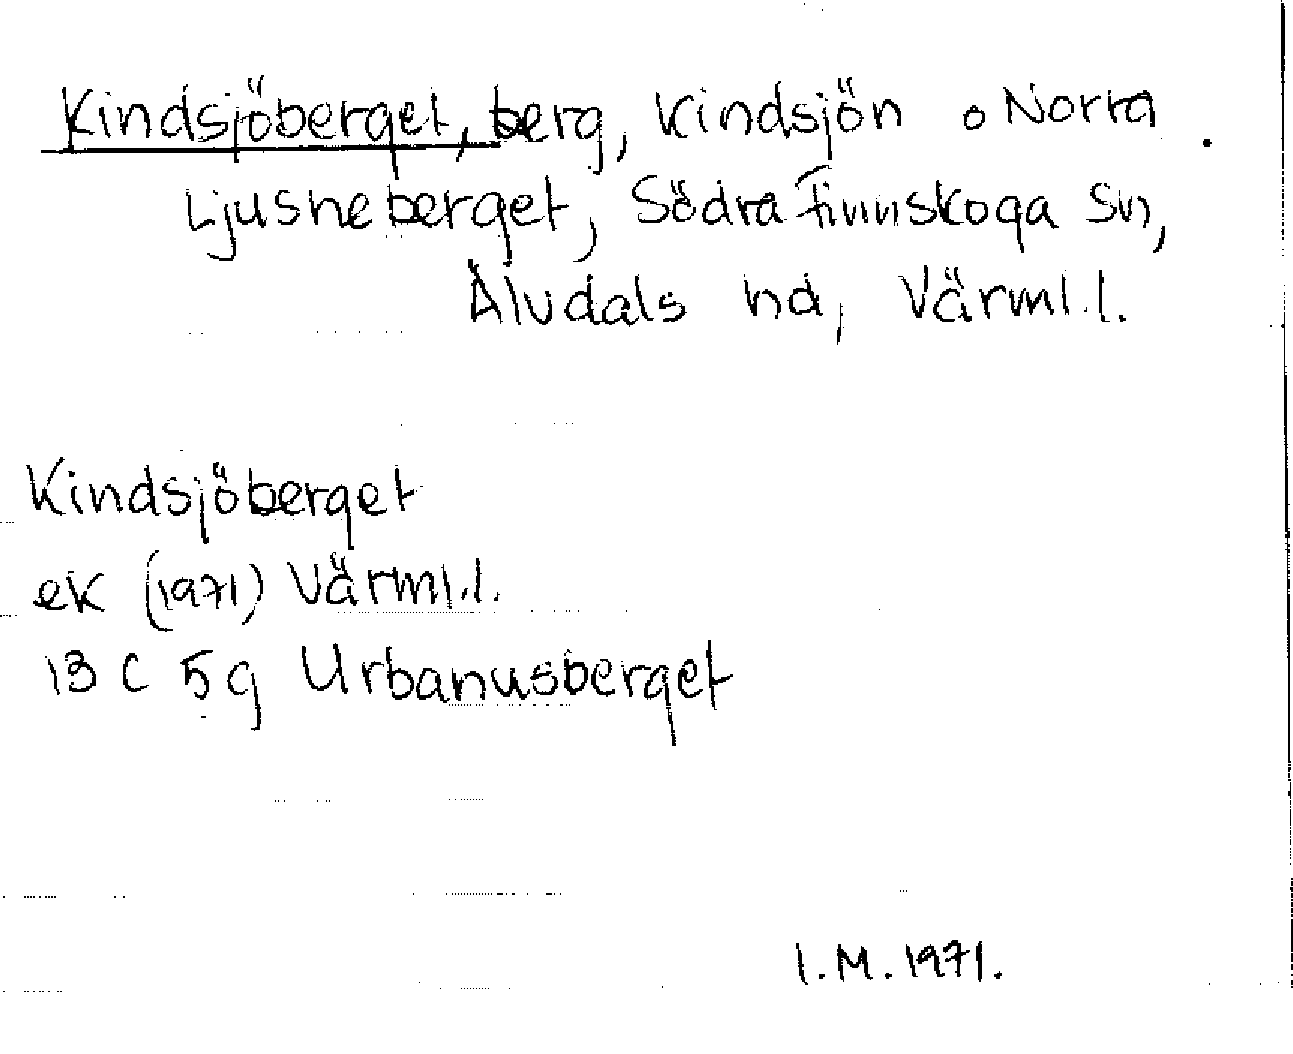 Kindsjöberget, berg, Kindsjön o Norra
Ljusneberget, Södra Finnskoga sn,
Älvdals hd, Värml.l.
Kindsjöberget
ek (1971) Värml.l.
13 C 5g Urbanusberget
I.M. 1971.